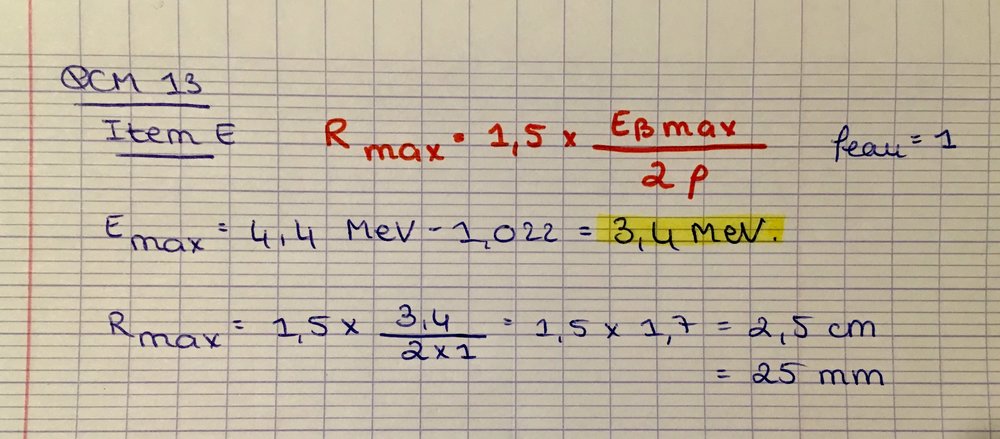 QCM 13
Item E
R max = 1,5 x Eβ max / 2 ρ
ρeau = 1
E max = 4,4 MeV - 1,022 = 3,4 MeV.
R max = 1,5 x 3,4 / 2 x 1 = 1,5 x 1,7 = 2,5 cm
= 25 mm